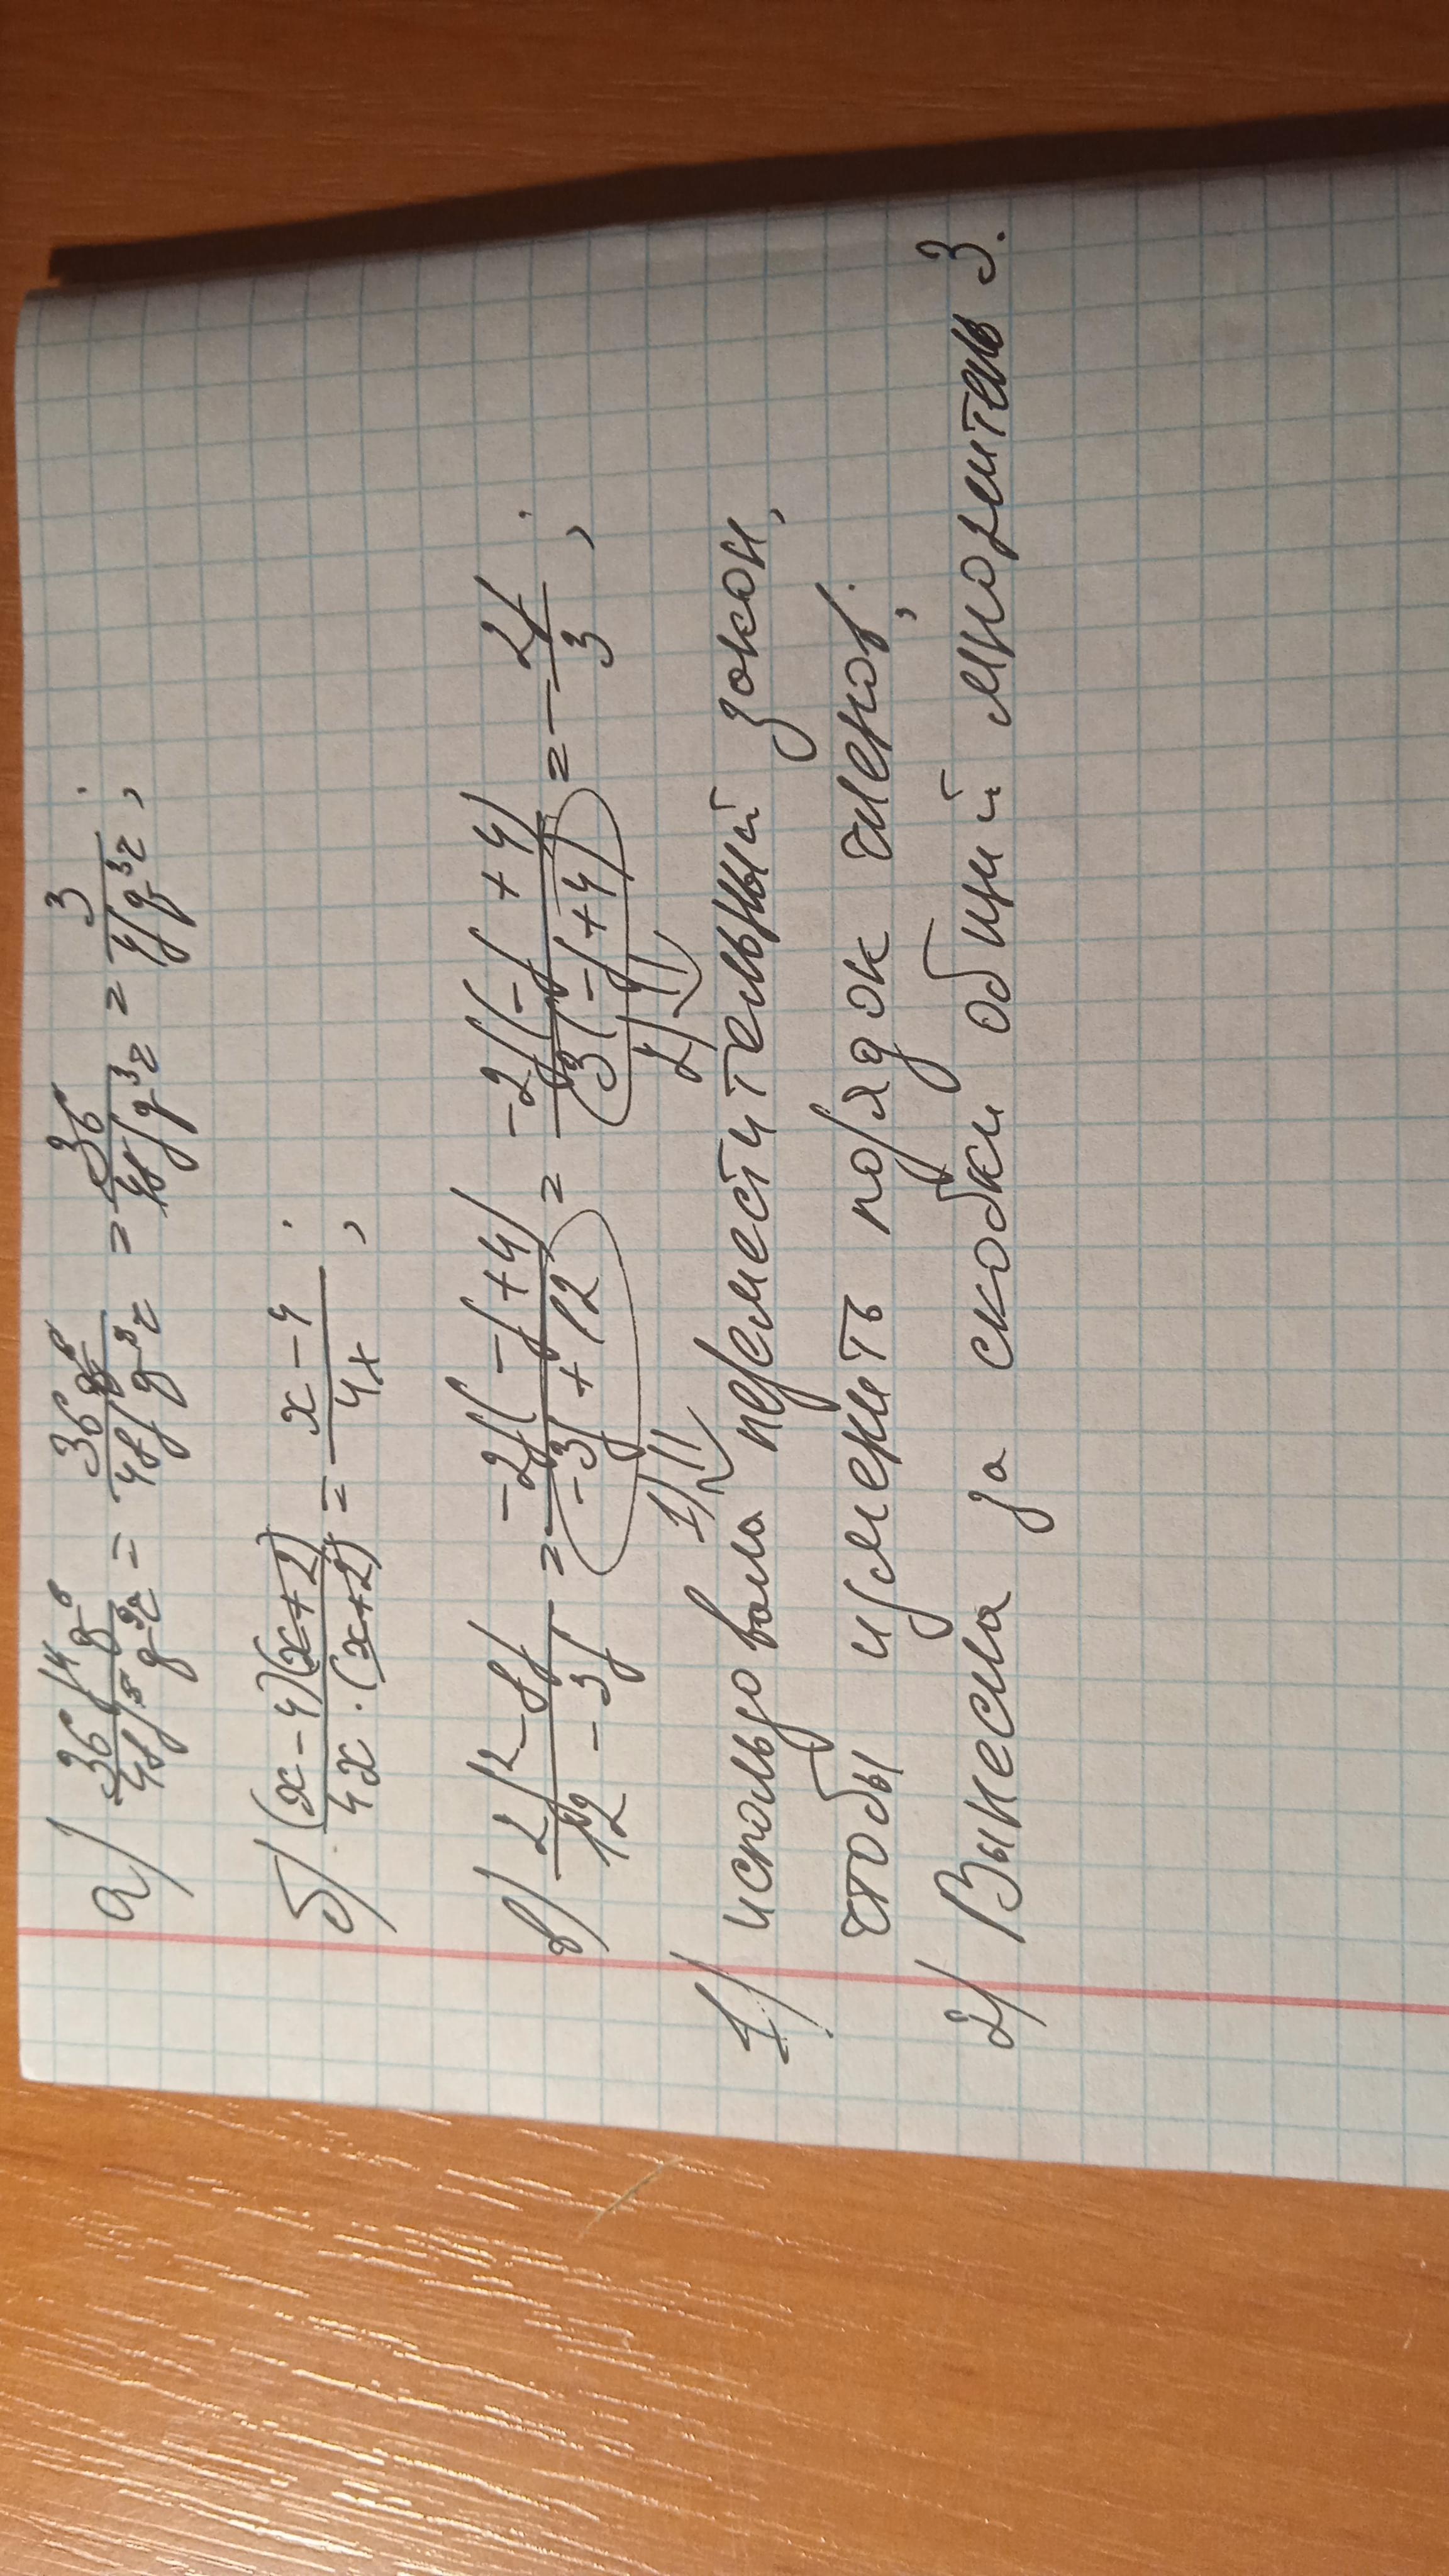 а) 36 f⁴ g⁸ / 48 f⁵ g⁹ z = 36 g⁸ / 48 f g⁹ z = 36 / 48 f g³ z = 3 / 4 f g³ z ;
б) (x - 4)(x + 2) / 4x · (x + 2) = x - 4 / 4x ;
в) 2f² - 8f / 12 - 3f = -2f(-f + 4) / -3f + 12 = -2f(-f + 4) / 3(-f + 4) = - 2f / 3 ;
1) 2)
1) использовала переместительный закон,
чтобы изменить порядок членов;
2) Вынесла за скобки общий множитель 3.